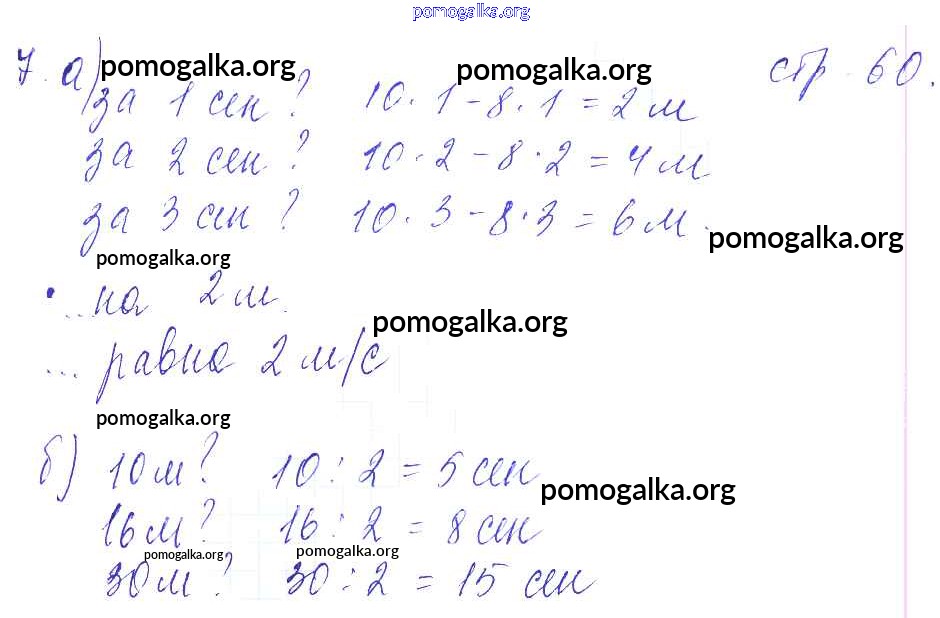 pomogalka.org
7. а) pomogalka.org pomogalka.org стр. 60.
за 1 сек? 10·1-8·1=2 м
за 2 сек? 10·2-8·2=4 м
за 3 сек? 10·3-8·3=6 м.
pomogalka.org pomogalka.org
...на 2 м.
pomogalka.org
... равна 2 м/с
pomogalka.org
б) 10 м? 10:2=5 сек
pomogalka.org
16 м? 16:2=8 сек
pomogalka.org pomogalka.org
30 м? 30:2=15 сек